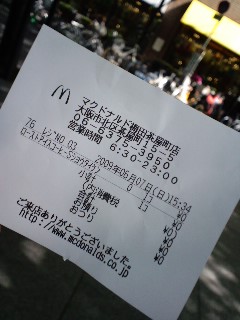 マクドナルド梅田茶屋町店
大阪市北区茶屋町15-5
06-6375-3950
営業時間 6:30-23:00
2009年06月07日(日)15:34
76 レジNO.03
小計
内消費税
合計
お預り
おつり
ご来店ありがとうございました。
http://www.mcdonalds.co.jp